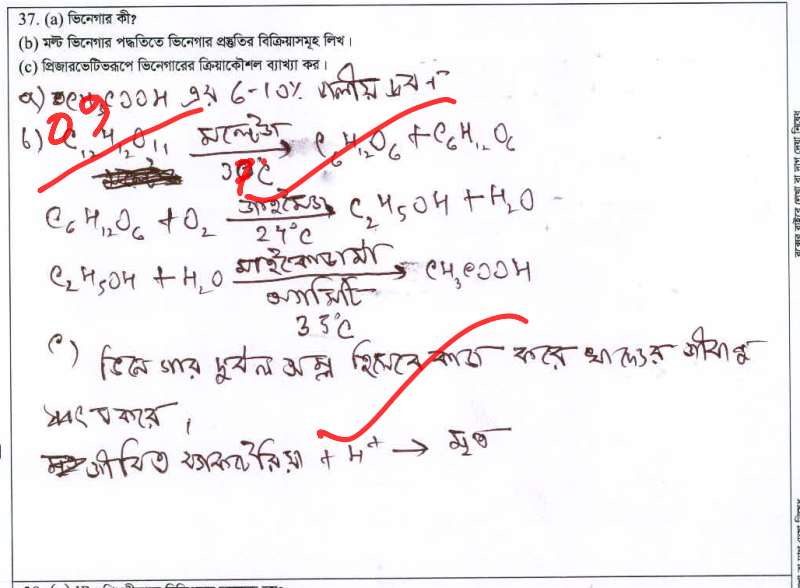 37. (a) ভিনেগার কী?
(b) মল্ট ভিনেগার পদ্ধতিতে ভিনেগার প্রস্তুতির বিক্রিয়াসমূহ লিখ।
(c) প্রিজারভেটিভরূপে ভিনেগারের ক্রিয়াকৌশল ব্যাখ্যা কর।
a) CH₃COOH এর 6-10% জলীয় দ্রবণ
b) C₁₂H₁₂O₁₁ মল্টেজ → C₆H₁₂O₆ + C₆H₁₂O₆
C₆H₁₂O₆ + O₂ জাইমেজ → C₂H₅OH + H₂O
24°C
C₂H₅OH + H₂O মাইকোডার্মা → CH₃COOH
অ্যাসিটি
35°C
c) ভিনেগার দুর্বল অম্ল হিসেবে কাজ করে খাদ্যের জীবাণু
ধ্বংস করে।
জীবিত ব্যাকটেরিয়া + H⁺ → মৃত